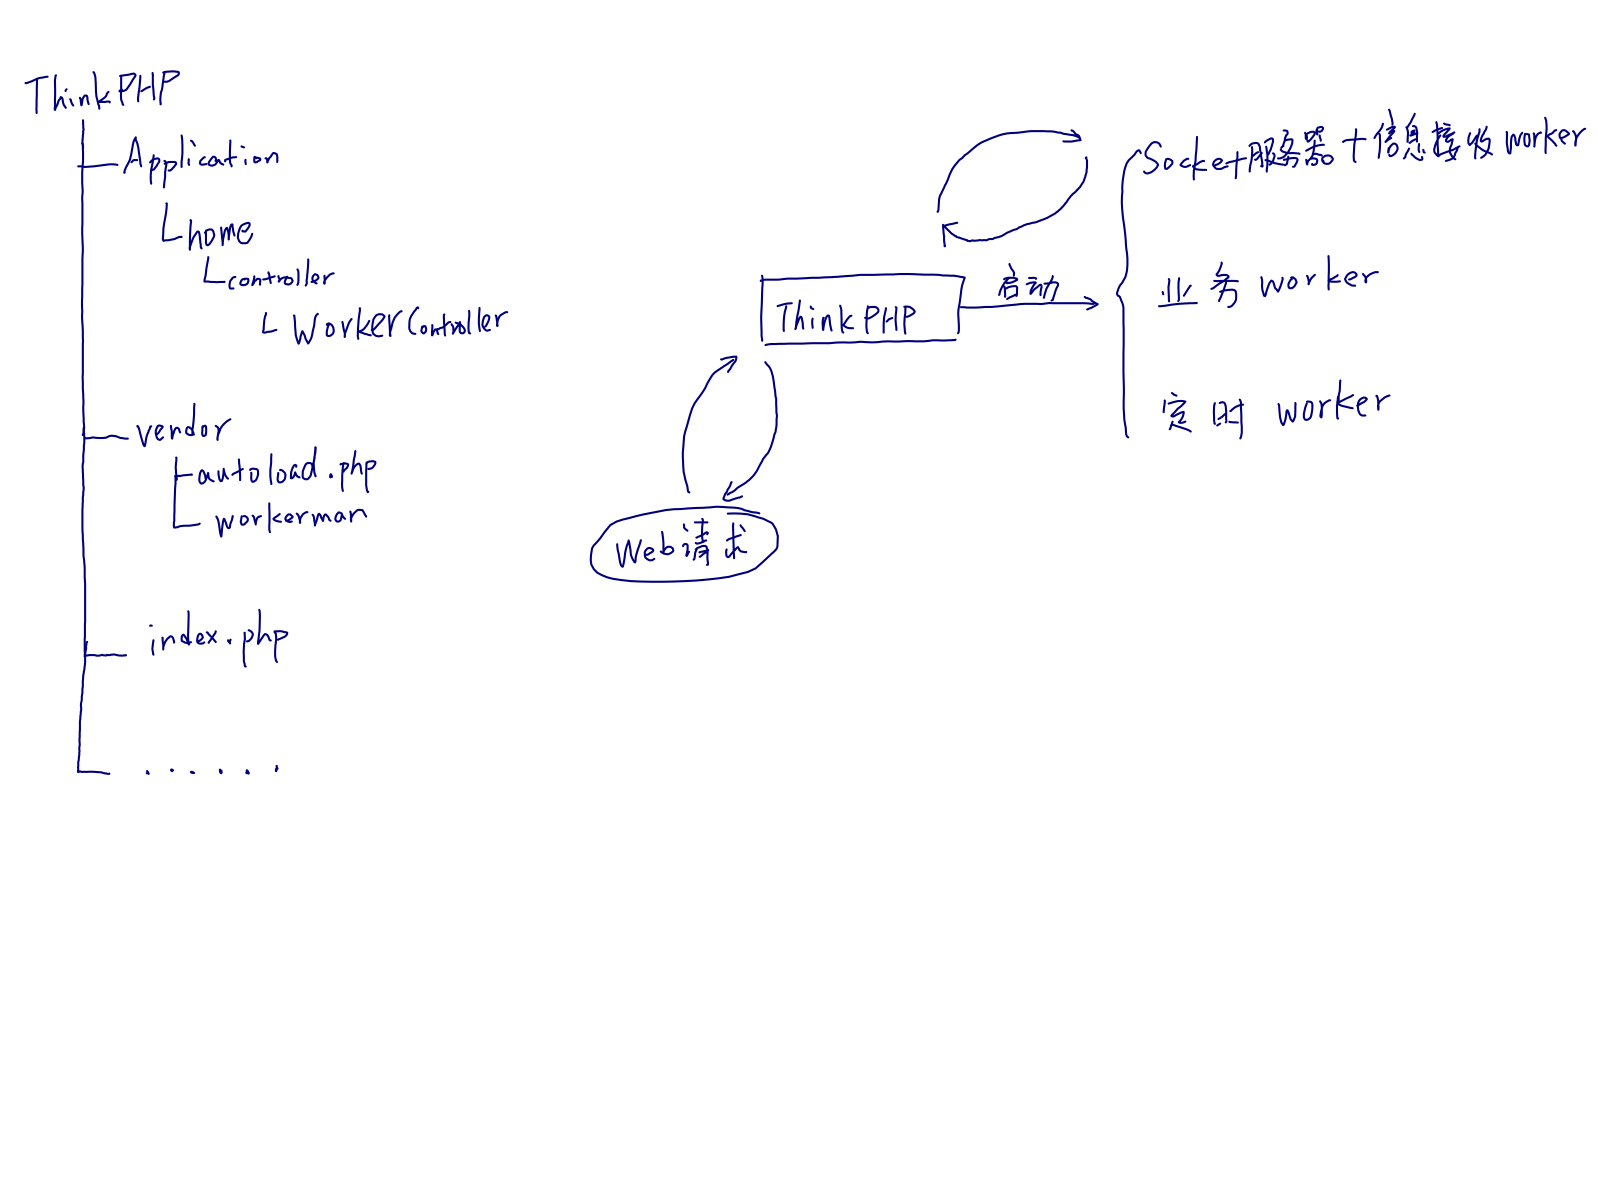 ThinkPHP
Application
home
controller
WorkerController
vendor
autoload.php
workerman
index.php
......
ThinkPHP
启动
Web请求
Socket服务器+信息接收worker
业务worker
定时worker